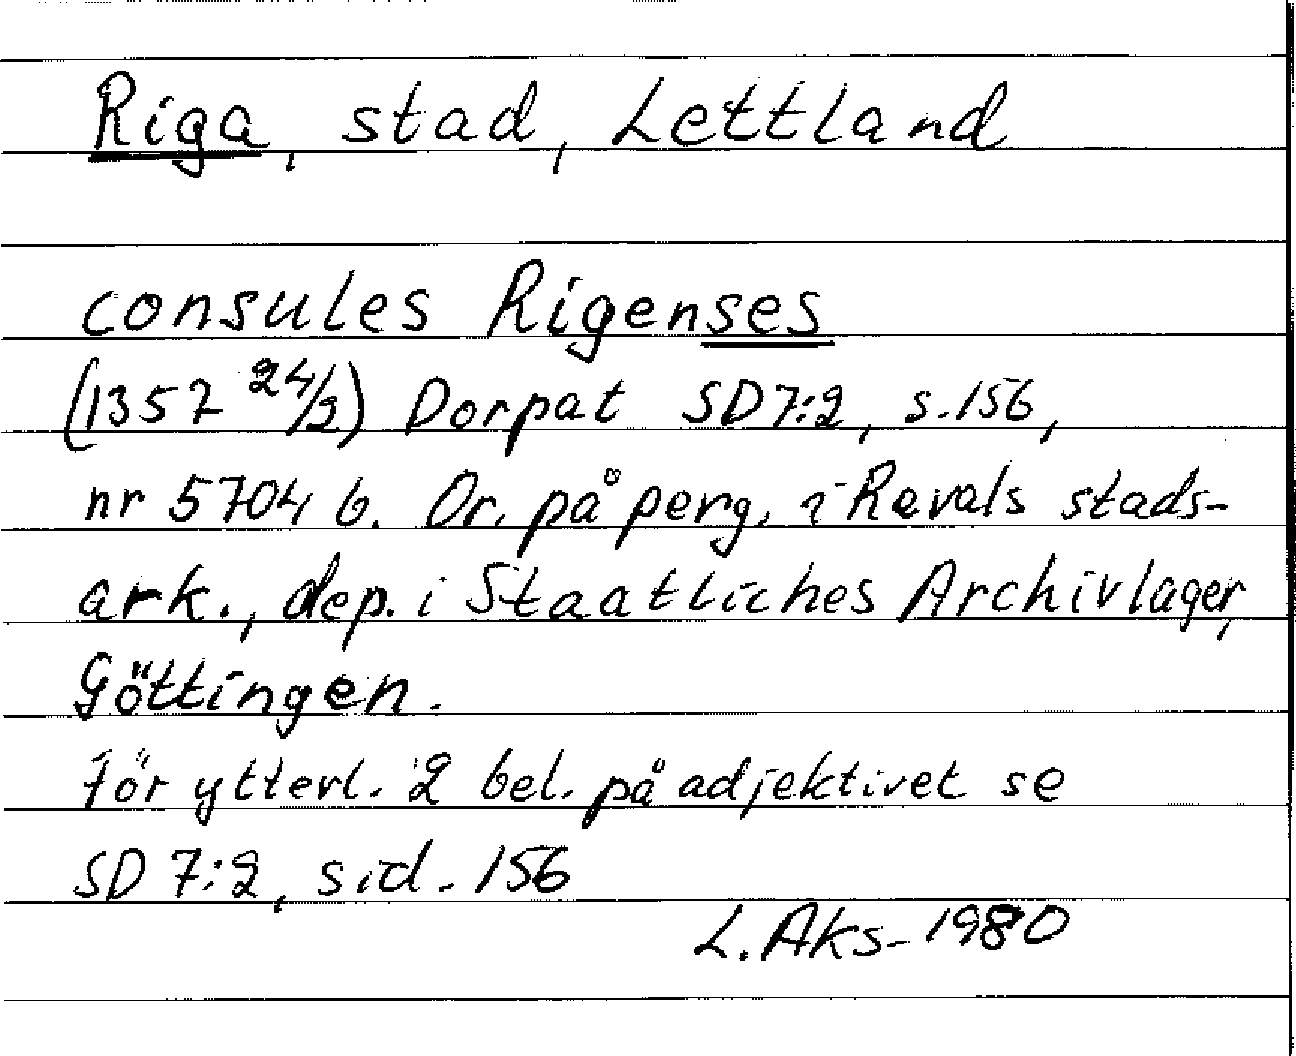 Riga, stad, Lettland
consules Rigenses
(1357 24/2) Dorpat SD7:2, s.156,
nr 5704 b. Or. på perg. i Revals stads-
ark., dep. i Staatliches Archivlager,
Göttingen.
För ytterl. 2 bel. på adjektivet se
SD 7:2, sid. 156
L. Aks- 1980